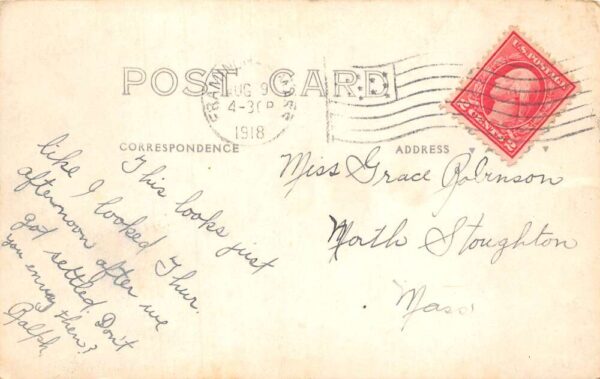 POST CARD
FRAMINGHAM
AUG 9
4-30P
1918
U.S. POSTAGE
2 CENTS 2
CORRESPONDENCE
ADDRESS
This looks just
like I looked Thur.
afternoon after we
got settled. Don't
you envy them?
Ralph.
Miss Grace Robinson
North Stoughton
Mass